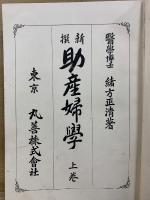 醫學博士 緒方正清著
新撰 助產婦學 上卷
東京 丸善株式會社